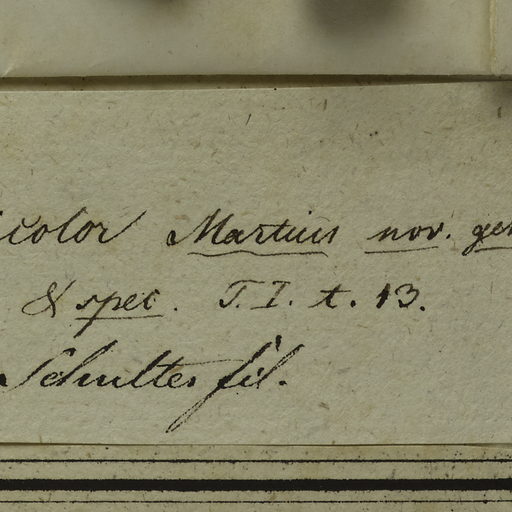 icolor Martius nov. gen
& spec. T. I. t. 13.
Schultes fil.